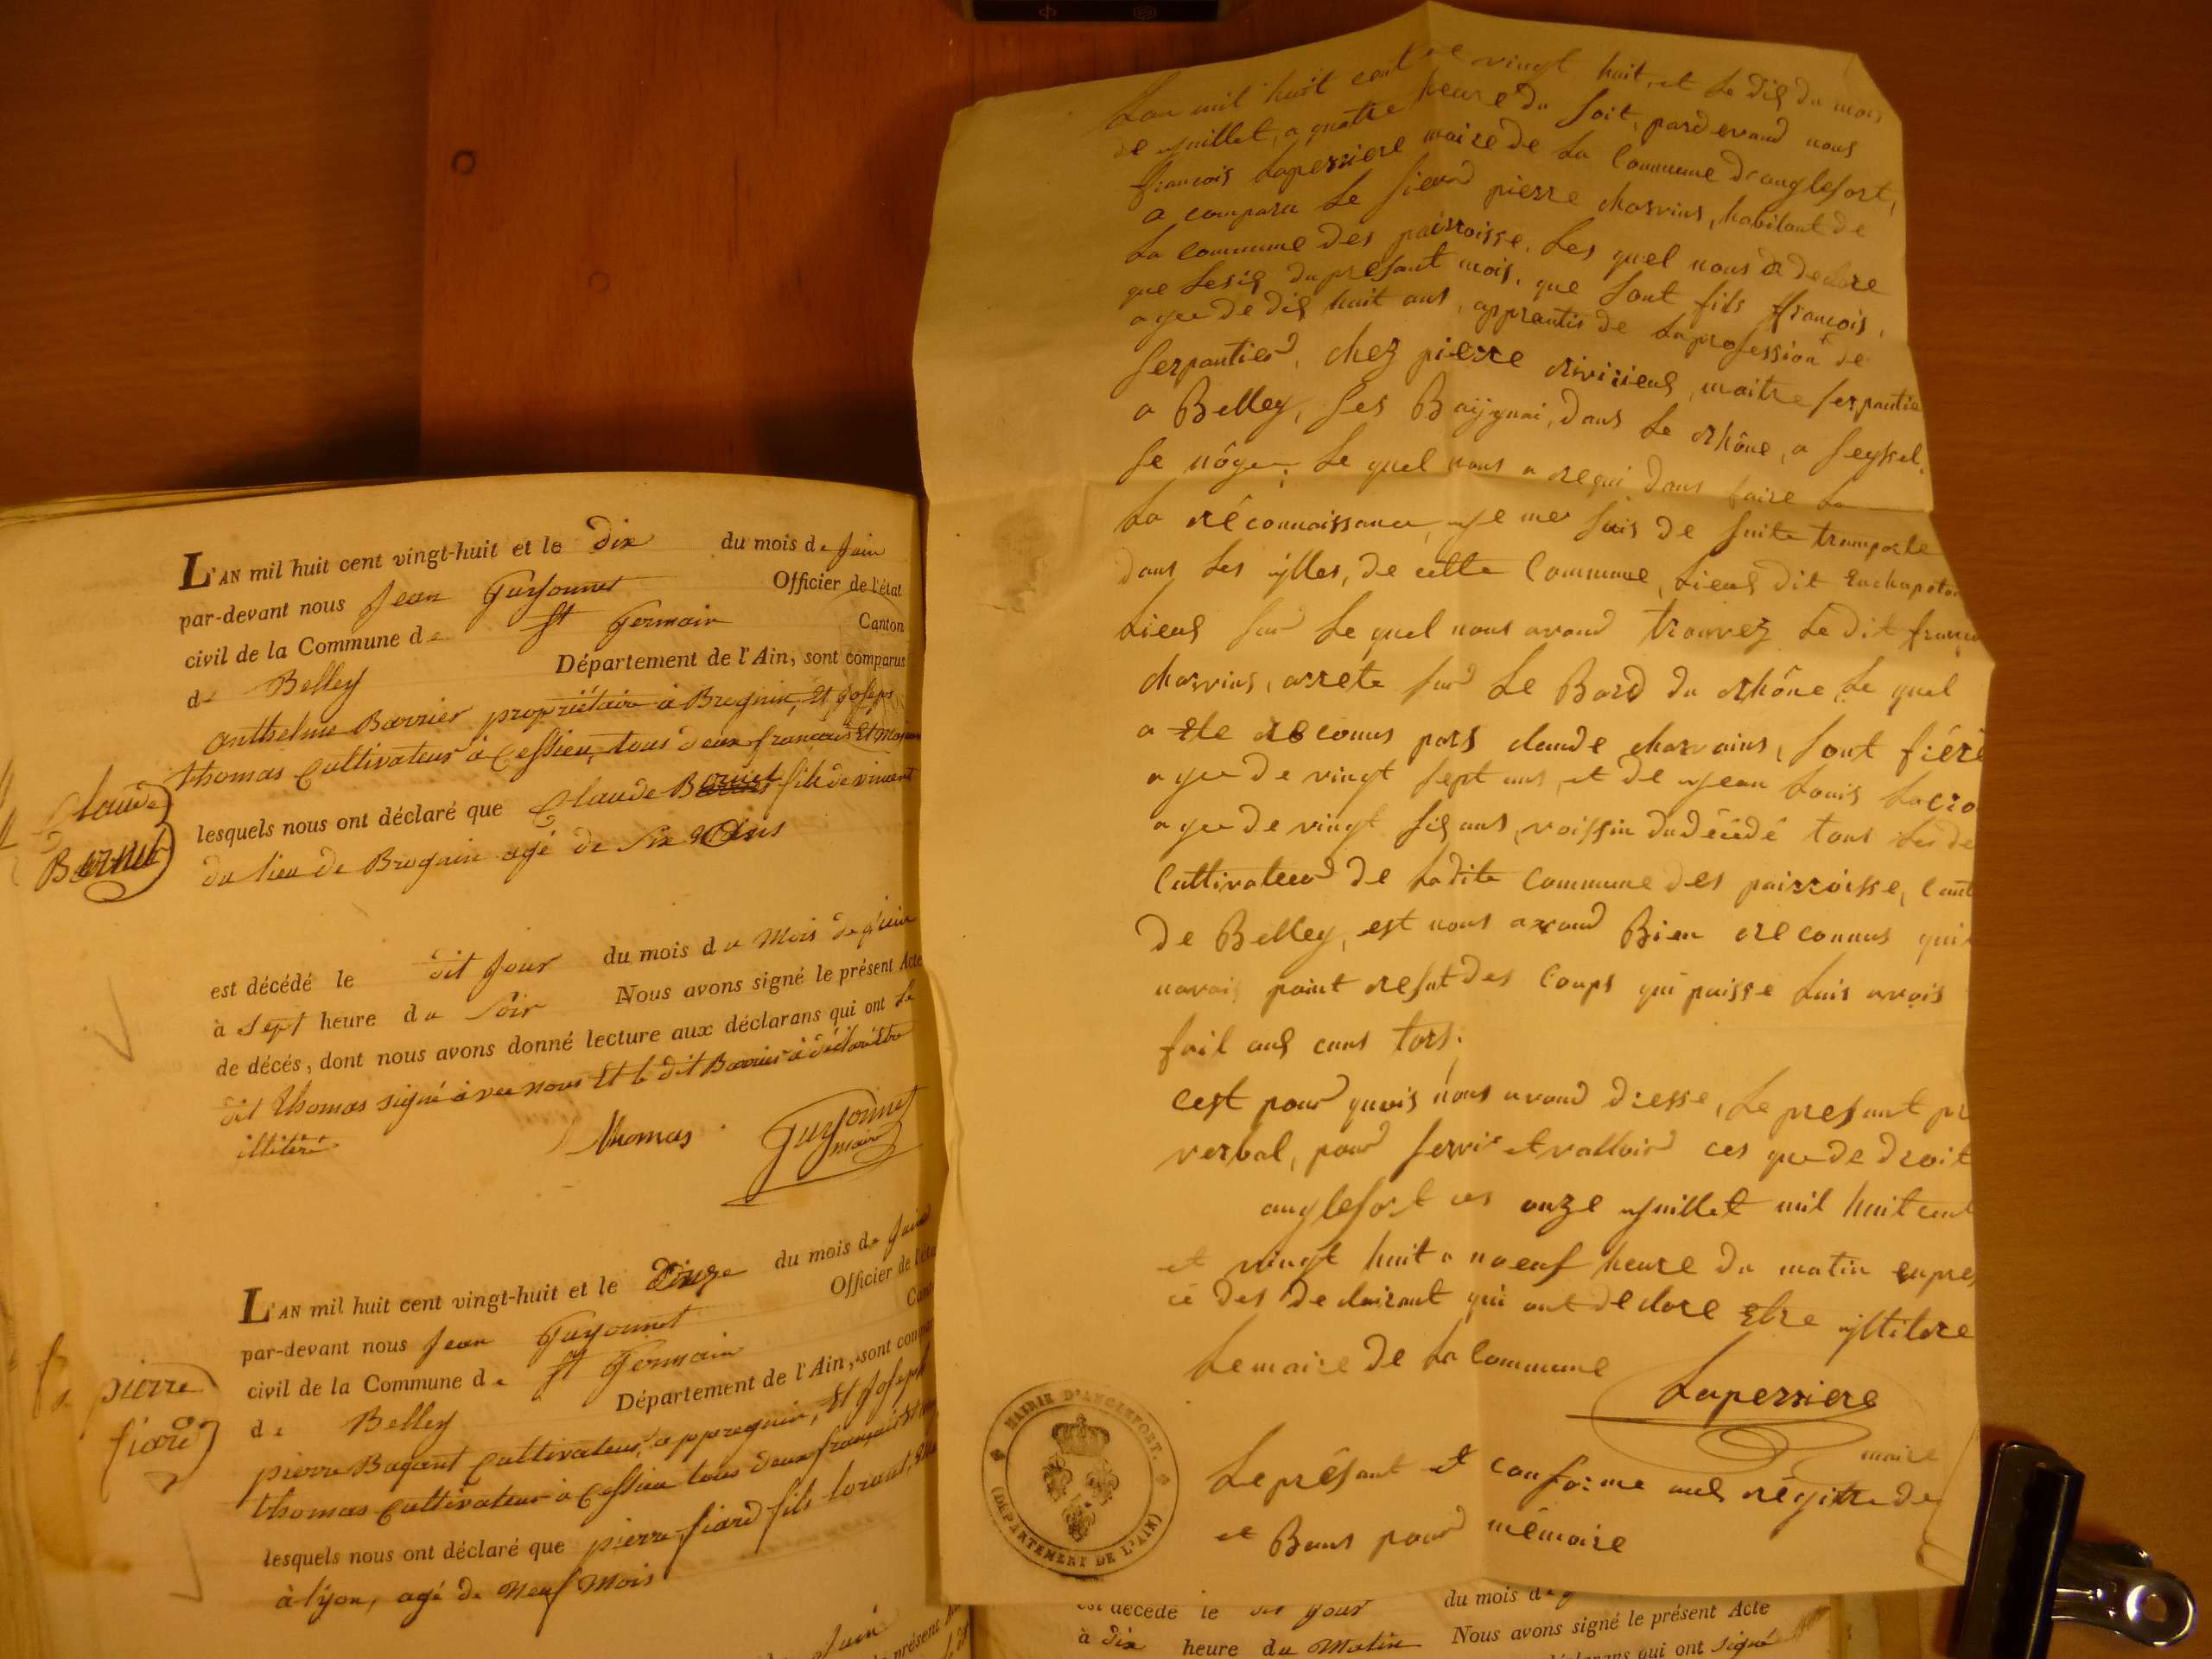 L'AN mil huit cent vingt-huit et le dix du mois de juin
par-devant nous Jean Guyonnet Officier de l'état
civil de la Commune de St Germain Canton
de Belley Département de l'Ain, sont comparus
anthelme Barrier propriétaire à Brognin, Et Joseph
thomas Cultivateur à Cessieu, tous deux francais Et majeurs
lesquels nous ont déclaré que Claude fils de vincent
du lieu de Brognin agé de Six
Claude
est décédé le dit jour du mois du Mois de juin
à sept heure du Soir Nous avons signé le présent Acte
de décés, dont nous avons donné lecture aux déclarans qui ont Le
dit Thomas signé avec nous Et le dit Barrier à déclaré Etre
illitéré
Thomas Guyonnet
maire
L'AN mil huit cent vingt-huit et le Onze du mois de juin
par-devant nous Jean Guyonnet Officier de l'éta
civil de la Commune de St Germain Can
de Belley Département de l'Ain, sont com
pierre Cultivateur à appregnin, Et Joseph
thomas Cultivateur à Cessieu tous deux français Et
lesquels nous ont déclaré que pierre fiard fils
à lyon, agé de Neuf Mois
pierre
fiard
juin
présent
Lan mil huit cent et vingt huit, et Le dis du mois
de juillet, a quatre heure du soit, pardevand nous
francois Laperriere maire de La Commune danglefort,
a comparu Le sieur pierre charvins, habitant de
La commune des pairroisse. Les quel nous a declare
que Lesis du presant mois, que sont fils francois,
agee de dis huit ans, apprantis de La profession de
serpantier, chez pierre maitre serpantie
a Belley, ses Baijgnai, dans Le rhône, a seyssel,
se nôger. Le quel nous a requi dans faire La
La réconnaissance, je me suis de suite transporte
dans Les illes, de cette Commune, Lieus dit
Lieus sur Le quel nous avond trouvez Le dit
charvins, arrete sur Le Bord du rhône, Le quel
a ete reconus pars claude charvains, sont friere
agee de vingt sept ans, et de jean Louis
agee de vingt sis ans, voissin du décédé tous Les de
Cultivateur de Ladite commune des pairroisse, Cant
de Belley, est nous avond Bien reconnus
navais point resut des Coups qui puisse Luis avois
fait aus cuns tors.
cest pour quois nous avond dresse, Le presant pr
verbal, pour servir et valloir ces que de droit
anglefort ces onze juillet mil huit cent
et vingt huit a noeuf heure du matin enpres
ce des declairant qui ont declare Etre illitere
Le maire de La Commune
Laperriere
maire
MAIRIE D'ANGLEFORT.
(DÉPARTEMENT DE L'AIN)
Le présant et conforme aus régitre de
et Bons pour mémoire
est décédé le dit jour du mois de
à dix heure du Matin Nous avons signé le présent Acte
qui ont signé